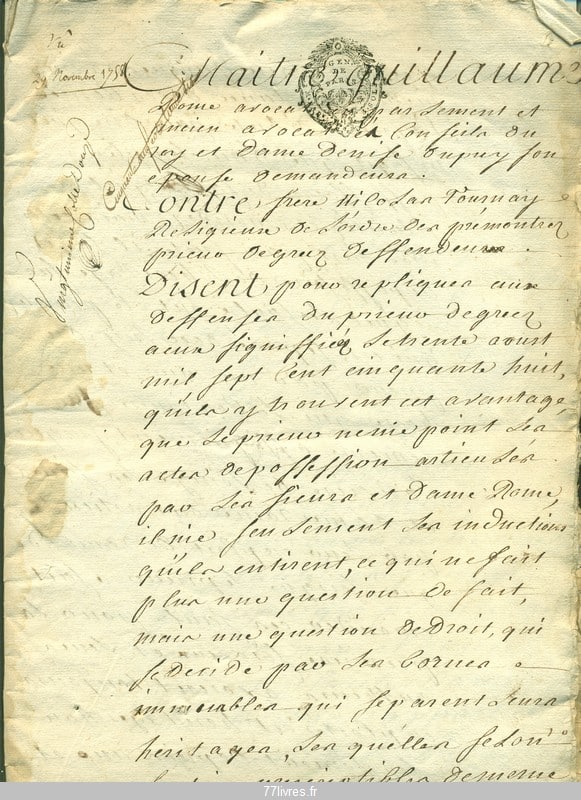 29 Novembre 1758
Maitre Guillaume
Rome avocat parlement et
ancien avocat Conseils du
roy et Dame Denise dupuy son
epouse demandeurs.
Contre, frere Hilolas Tournay
Religieux de l'ordre des prémontrez
prieur de grez deffendeur.
Disent pour repliques aux
deffenses du prieur de grez
a eux signiffiéz le trente aoust
mil sept Cent cinquante huit,
qu'ils y trouvent cet avantage,
que le prieur ne nie point les
actes de possession articulés
par les sieurs et Dame Rome,
il nie seulement les inductions
qu'ils en tirent, ce qui ne fait
plus une question de fait,
mais une question de Droit, qui
se decide par les bornes
immuables qui separent leurs
heritages, lesquelles selon
de meme
77livres.fr